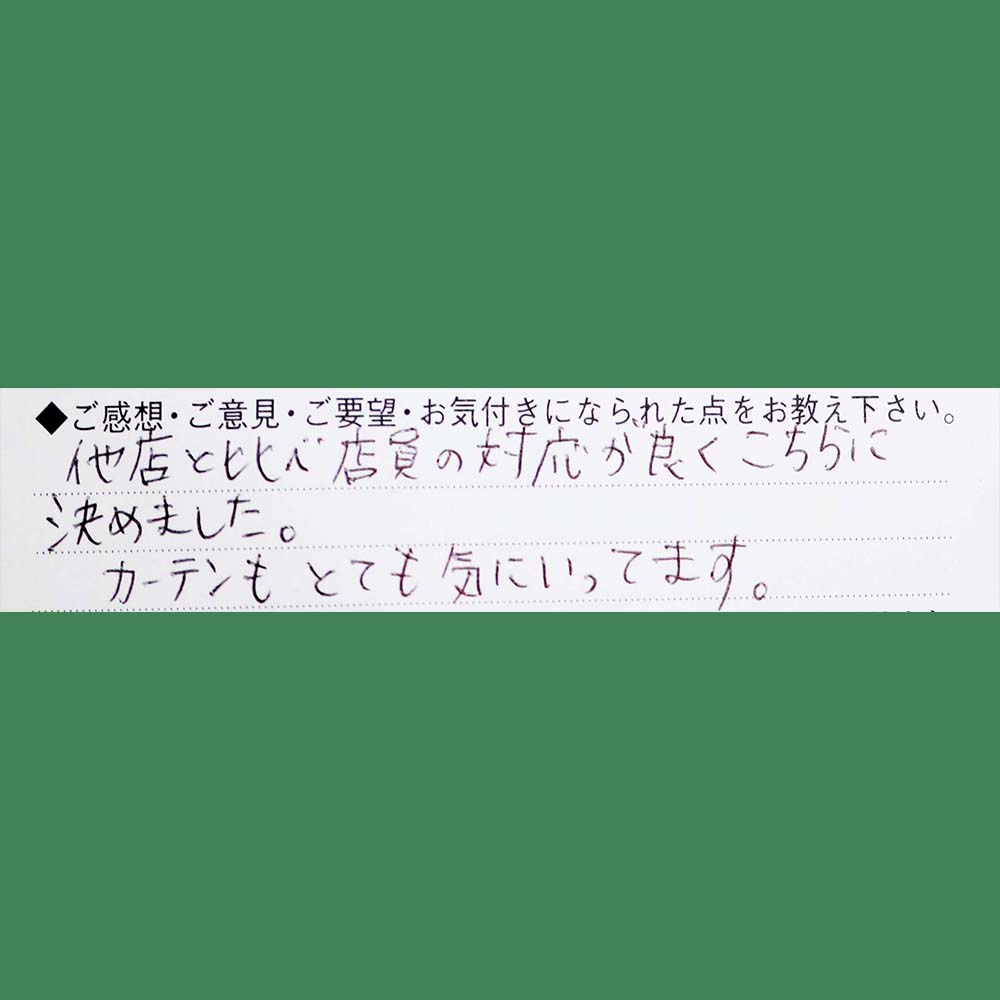 ◆ご感想・ご意見・ご要望・お気付きになられた点をお教え下さい。
他店と比べ店員の対応が良くこちらに
決めました。
カーテンもとても気にいってます。